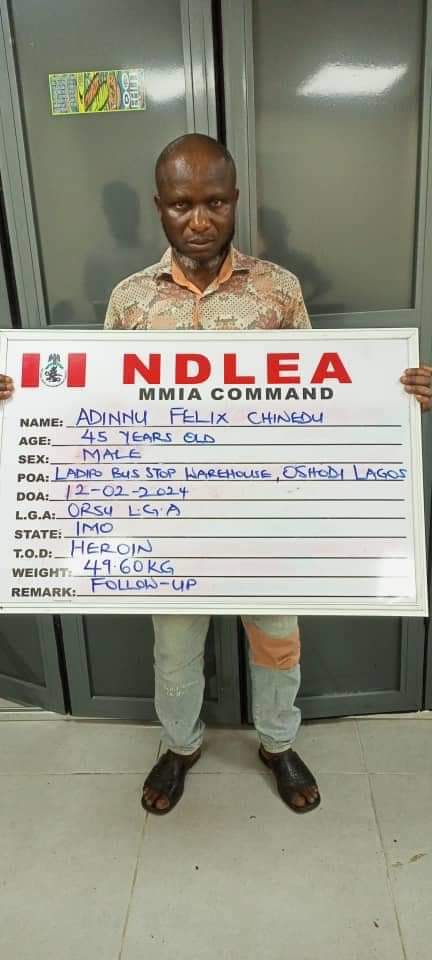 NDLEA
MMIA COMMAND
NAME: ADINNU FELIX CHINEDU
AGE: 45 YEARS OLD
SEX: MALE
POA: LADIPO BUS STOP WAREHOUSE, OSHODI LAGOS
DOA: 12-02-2024
L.G.A: ORSU L.G.A
STATE: IMO
T.O.D: HEROIN
WEIGHT: 49.60KG
REMARK: FOLLOW-UP